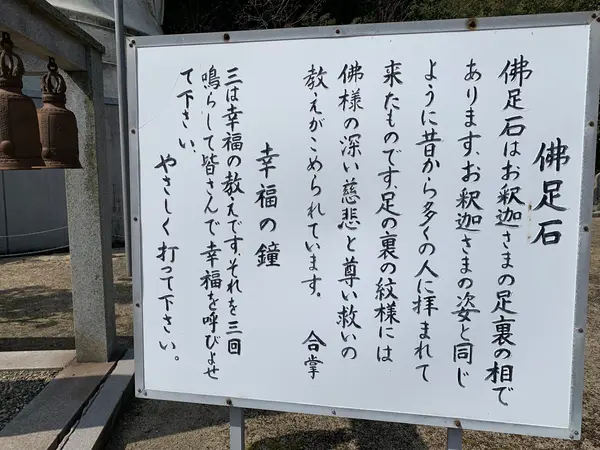 佛足石
佛足石はお釈迦さまの足裏の相で
あります、お釈迦さまの姿と同じ
ように昔から多くの人に拝まれて
来たものです、足の裏の紋様には
佛様の深い慈悲と尊い救いの
教えがこめられています。 合掌
幸福の鐘
三は幸福の教えです、それを三回
鳴らして皆さんで幸福を呼びよせ
て下さい、
やさしく打って下さい。